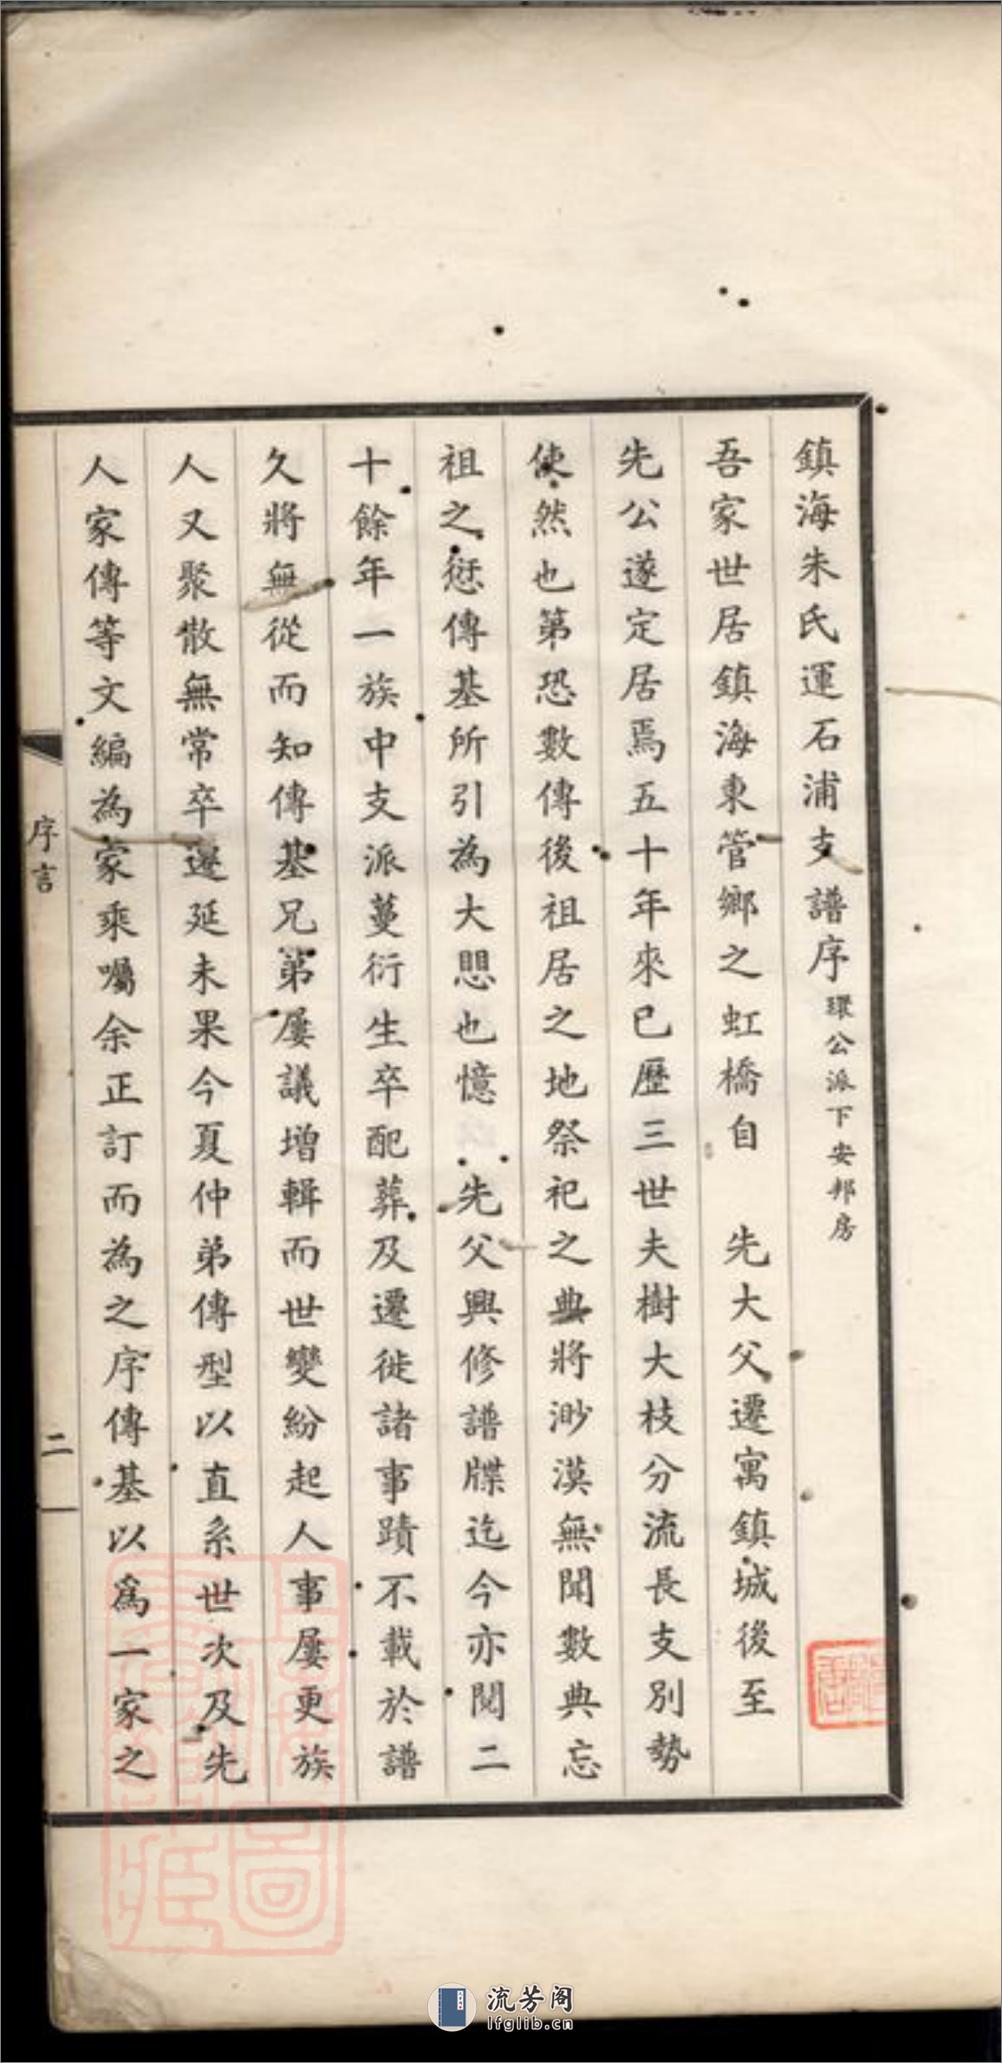 鎮海朱氏運石浦支譜序 環公派下安邦房
吾家世居鎮海東管鄉之虹橋自 先大父遷寓鎮城後至
先公遂定居焉五十年來已歷三世夫樹大枝分流長支別勢
使然也第恐數傳後祖居之地祭祀之典將渺漠無聞數典忘
祖之愆傳基所引為大思也憶 先父興修譜牒迄今亦閱二
十餘年一族中支派蔓衍生卒配葬及遷徙諸事蹟不載於譜
久將無從而知傳基兄弟屢議增輯而世變紛起人事屢更族
人又聚散無常卒遷延未果今夏仲弟傳型以直系世次及先
人家傳等文編為家乘囑余正訂而為之序傳基以爲一家之
序言
二
流芳阁
lfglib.cn